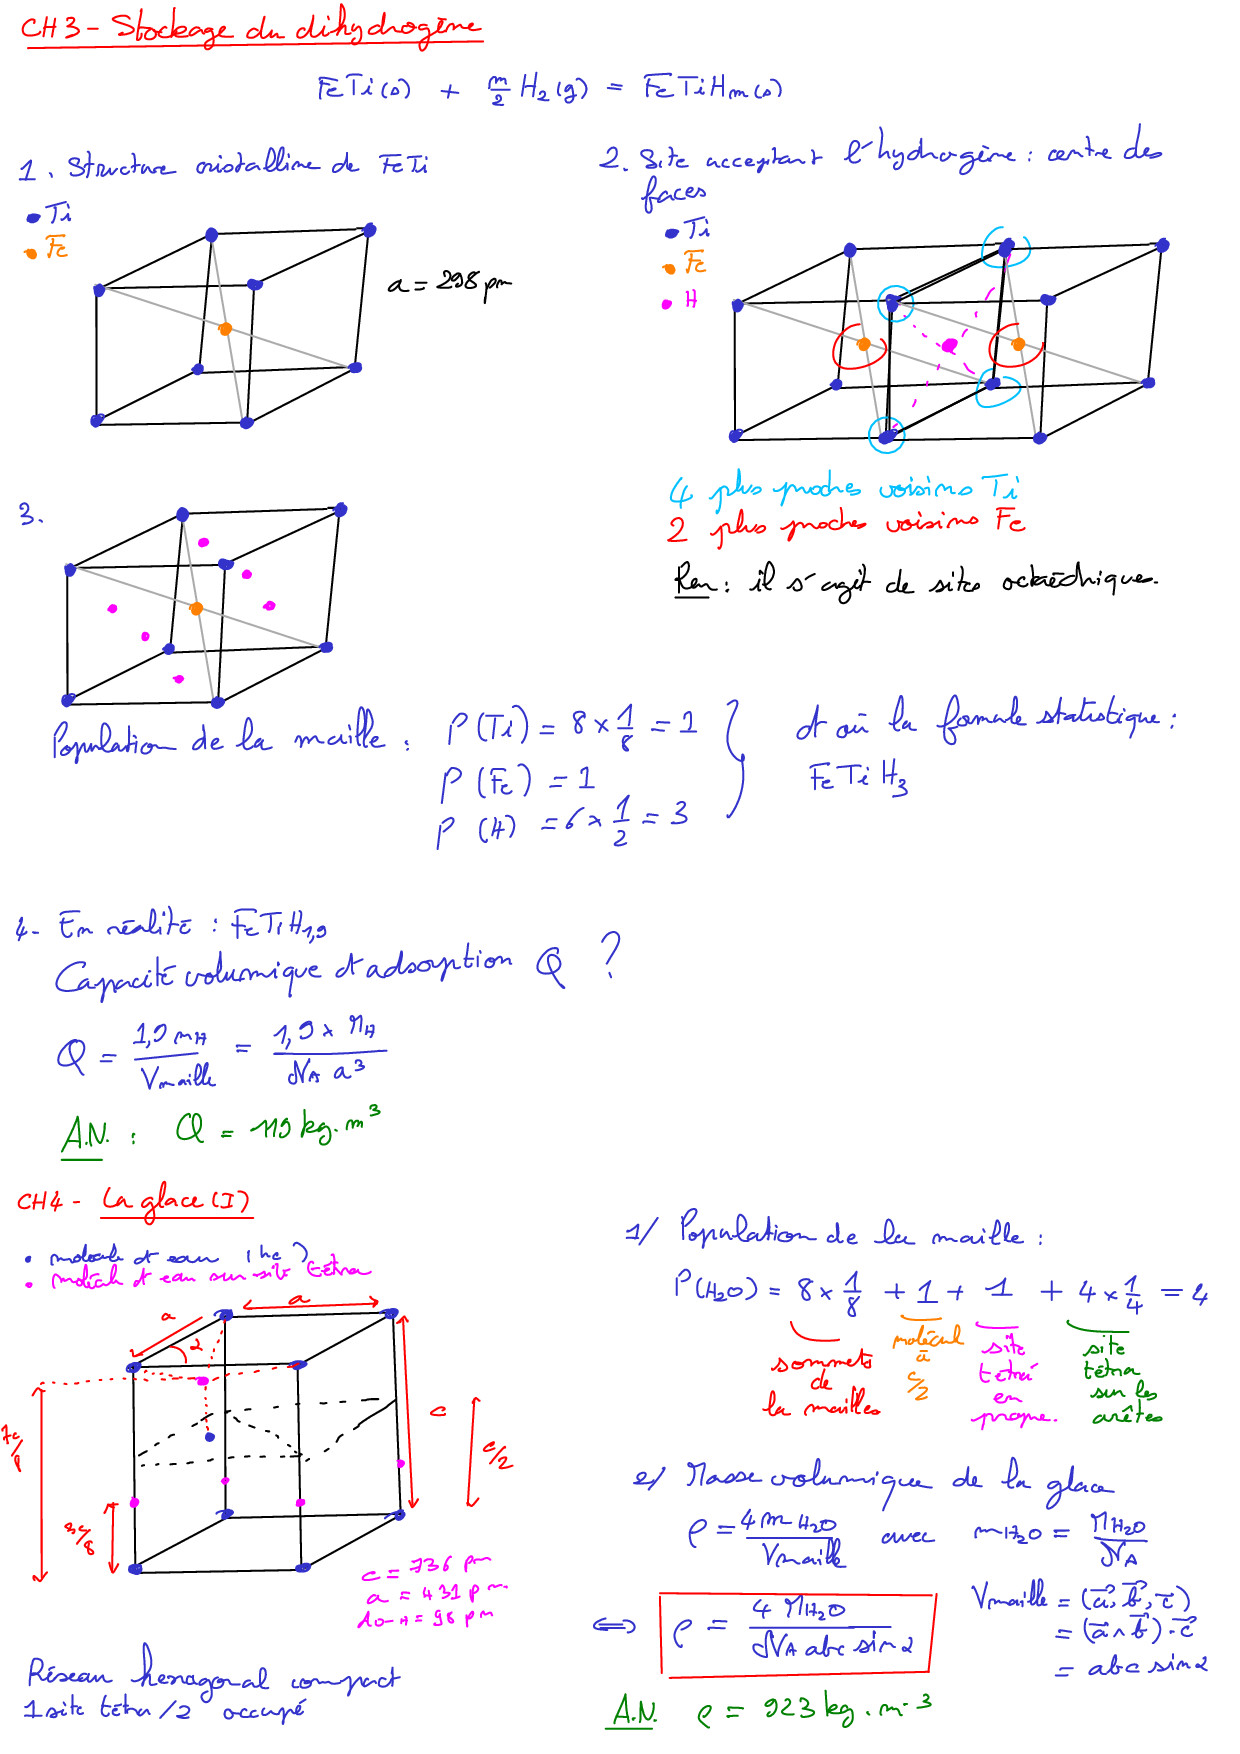 CH3 - Stockage du dihydrogène
FeTi(s) + m/2 H2(g) = FeTiHm(s)
1. Structure cristalline de FeTi
• Ti
• Fe
a = 298 pm
2. Site acceptant l'hydrogène : centre des
faces
• Ti
• Fe
• H
4 plus proches voisins Ti
2 plus proches voisins Fe
Rem : il s'agit de sites octaédriques.
3.
Population de la maille :
P(Ti) = 8 × 1/8 = 1
P(Fe) = 1
P(H) = 6 × 1/2 = 3
d'où la formule statistique :
FeTiH3
4- En réalité : FeTiH1,9
Capacité volumique d'adsorption Q ?
Q = 1,9 mH / Vmaille = 1,9 × MH / NA a³
A.N. : Q = 119 kg.m³
CH4 - La glace (I)
• molécule d'eau (hc)
• molécule d'eau sur site tétra
a
a
α
7c/8
3c/8
c
c/2
c = 736 pm
a = 431 pm
dO-H = 98 pm
Réseau hexagonal compact
1 site tétra/2 occupé
1/ Population de la maille :
P(H2O) = 8 × 1/8 + 1 + 1 + 4 × 1/4 = 4
sommets
de
la mailles
molécul
à
c/2
site
tétra
en
propre.
site
tétra
sur les
arêtes
2/ Masse volumique de la glace
ρ = 4 mH2O / Vmaille avec mH2O = MH2O / NA
Vmaille = (a⃗, b⃗, c⃗)
= (a⃗ ∧ b⃗) · c⃗
= abc sin α
⟺ ρ = 4 MH2O / NA abc sin α
A.N. ρ = 923 kg.m-3